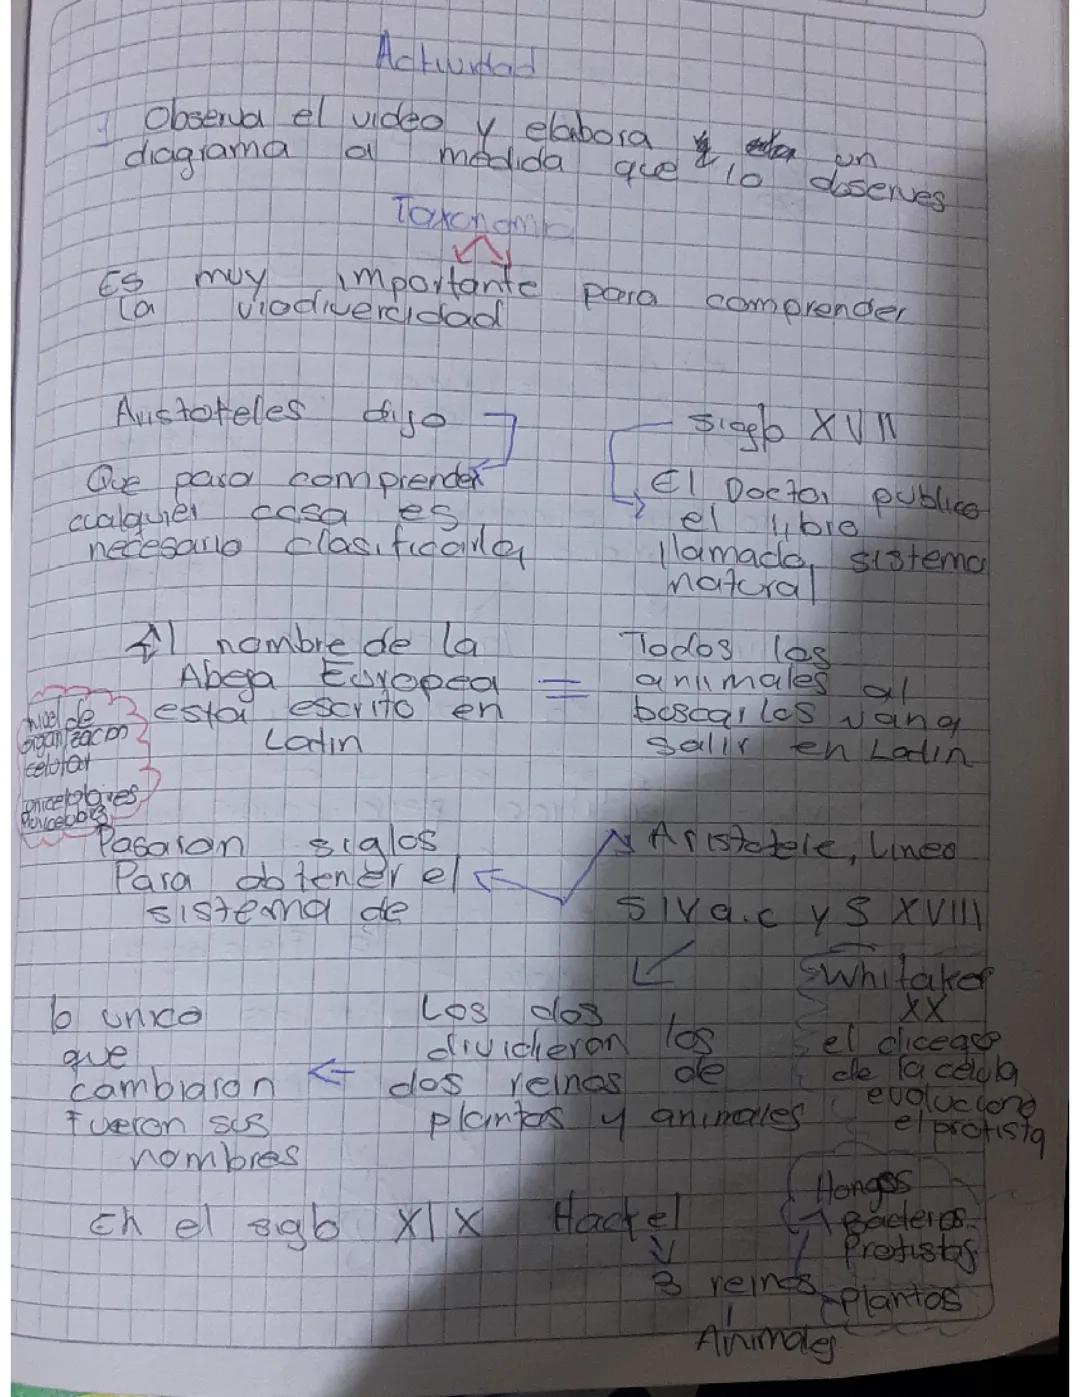 Actividad
1 Observa el video y elabora un
diagrama a medida que lo observes
Taxonomia
Es muy importante para comprender
la viodivercidad
Aristoteles dijo
Que para comprender
cualquier cosa es
necesario clasificarla
Siglo XVII
El Doctor publico
el libro
llamado sistema
natural
El nombre de la
Abega Europea
esta escrito en
Latin
=
Todos los
animales al
boscarlos van a
salir en Latin
nivel de
organizacion
celular
unicelulares
Pasaron siglos
Para obtener el
sistema de
Aristotele, Lineo
S IV a.c y S XVIII
Los dos
dividieron los
dos reinos de
plantas y animales
lo unico
que
cambiaron
fueron sus
nombres
Whitaker
XX
el dice que
de la celula
evoluciono
el protista
En el siglo XIX Hackel
3 reinos
Animales
Hongos
Bacterias
Protistas
Plantas